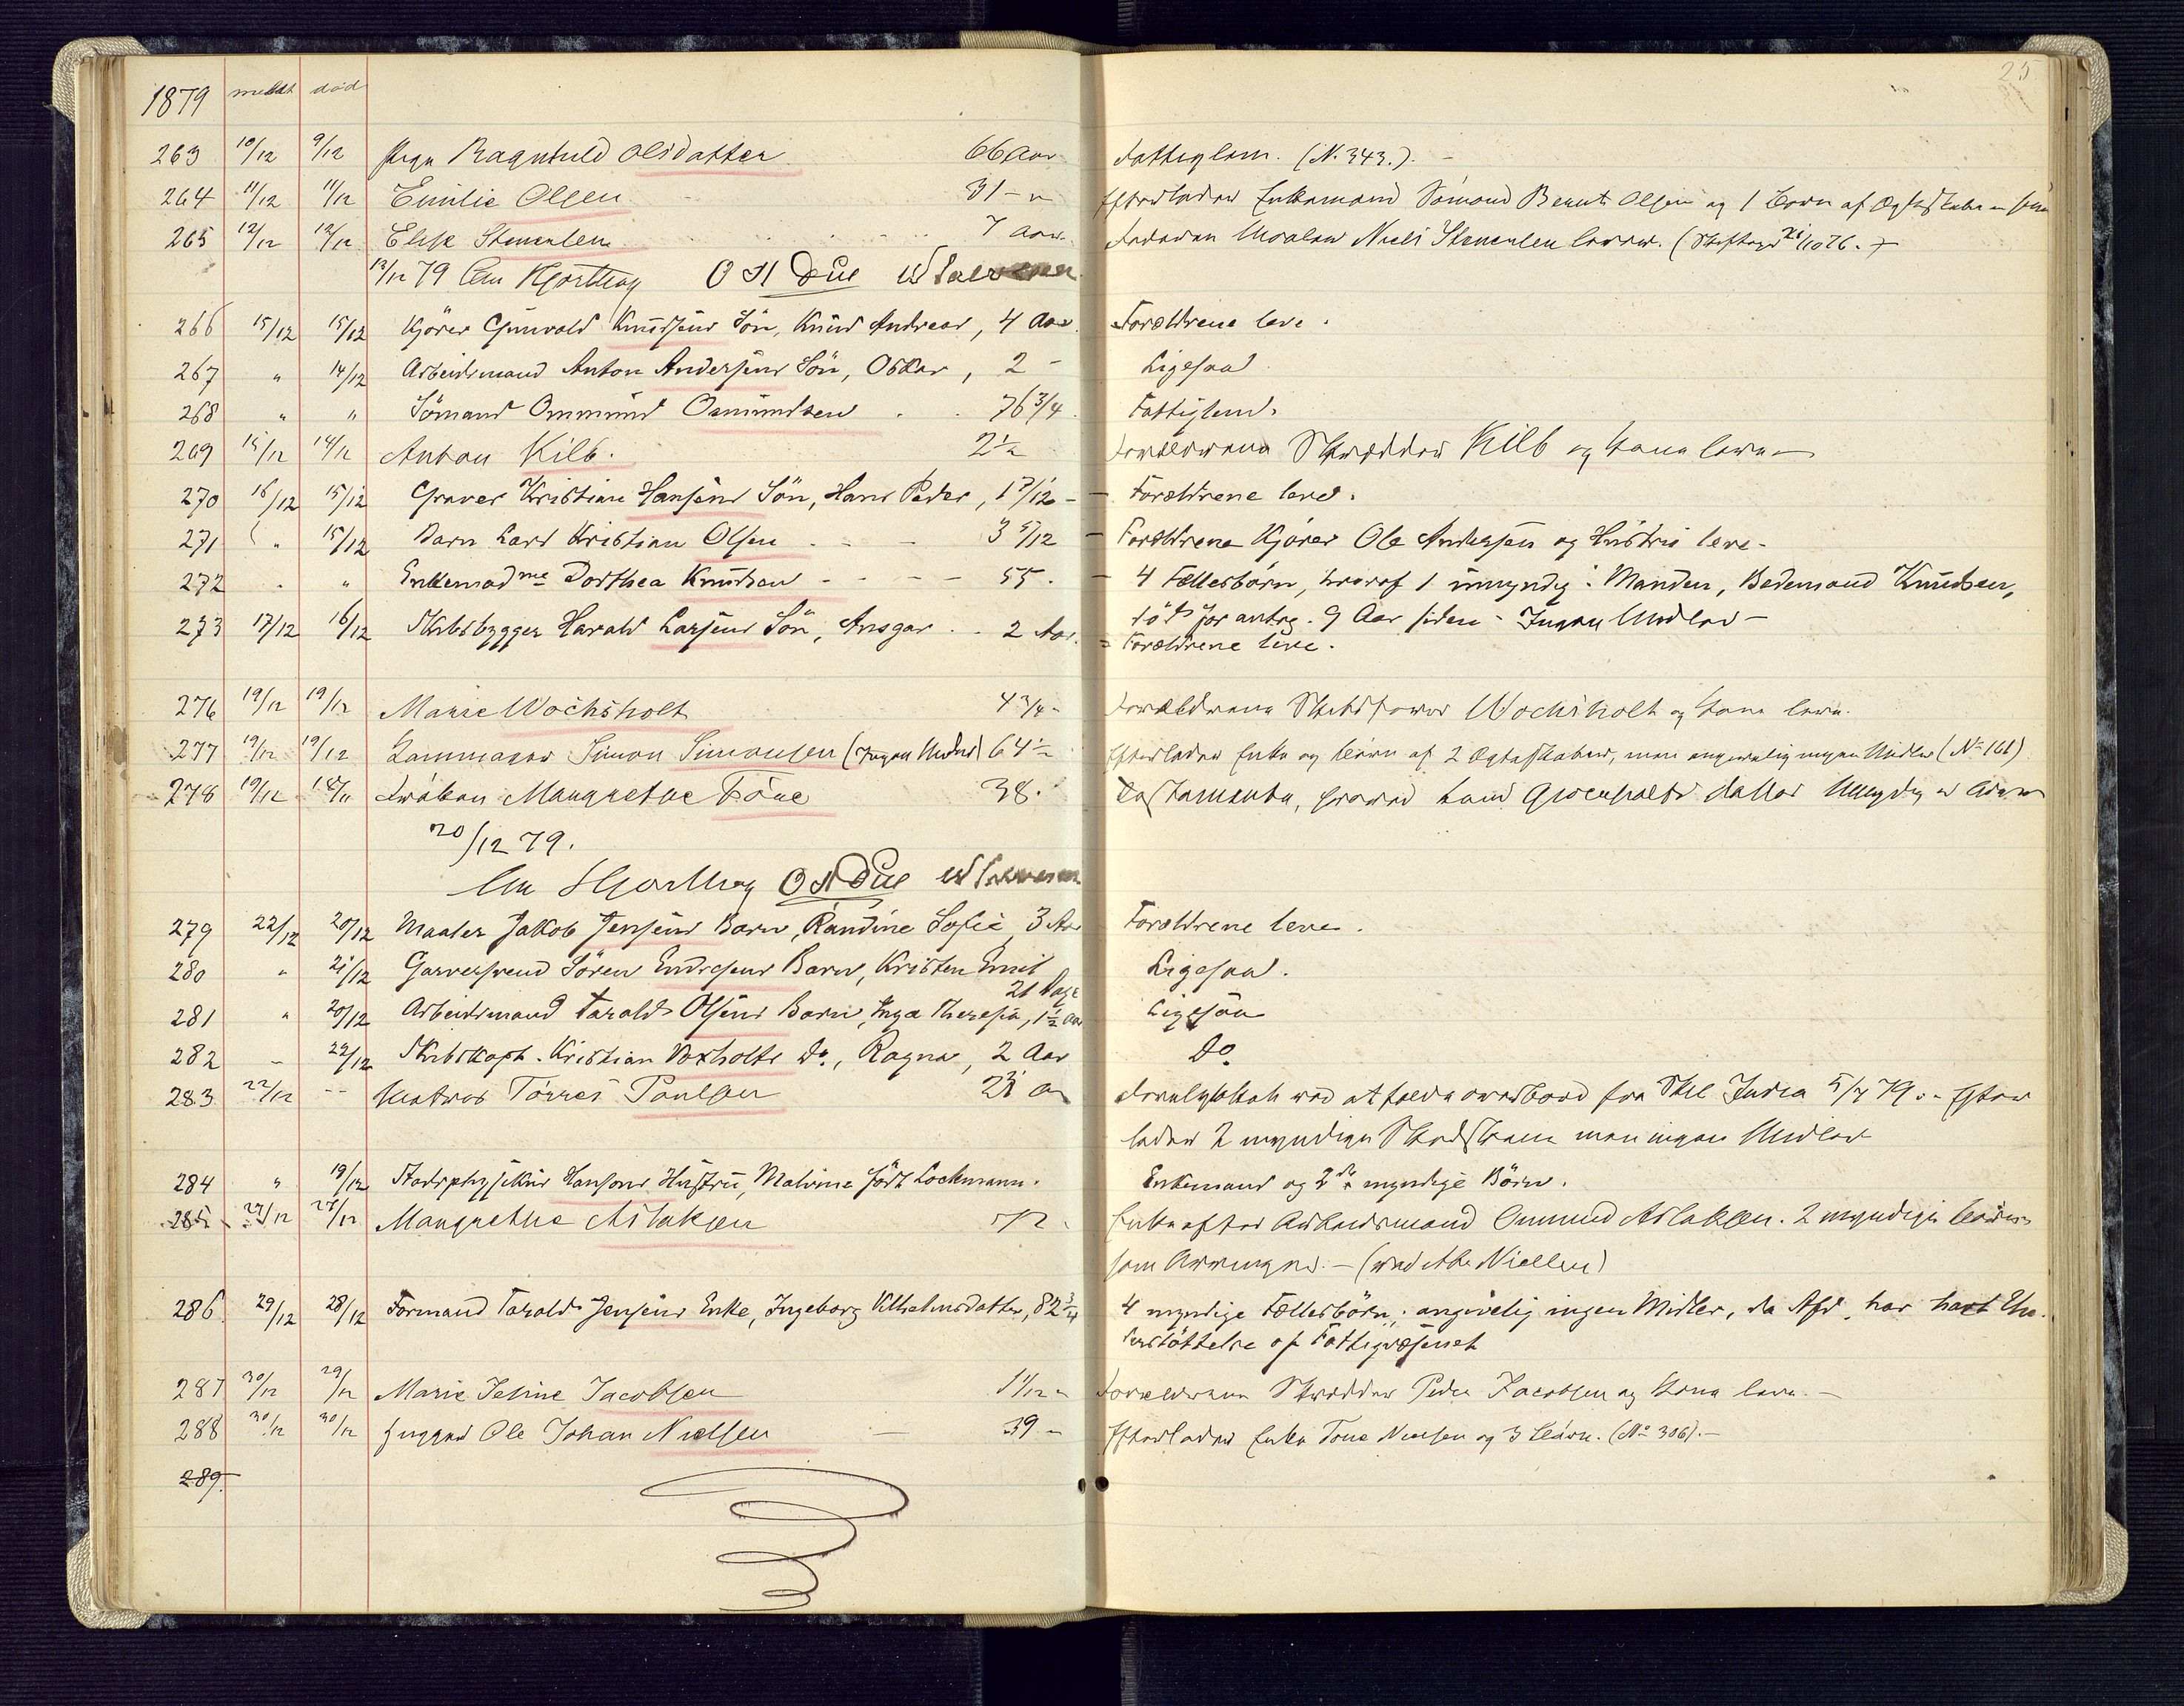 25
1879 meldt død
263 10/12 9/12 Pige Ragnhild Olsdatter 66 Aar Fattiglem. (N. 343.). -
264 11/12 11/12 Emilie Olsen 31 - Efterlader Enkemand Sømand Berent Olsen og 1 Barn af Ægteskabet
265 12/12 12/12 Elise Stenersen 7 Aar Faderen Maaler Niels Stenersen lever.
13/12 79 O H Due
266 15/12 15/12 Kjører Gunvald Knudsens Sön, Knud Andreas, 4 Aar. Forældrene leve.
267 " 14/12 Arbeidsmand Anton Andersens Sön, Oskar, 2 - Ligesaa
268 " " Sömand Ommund Osmundsen . . 76 3/4. Fattiglem.
269 15/12 14/12 Anton Kilb. 2 1/2 Forældrene Skrædder Kilb og Kone leve
270 16/12 15/12 Graver Kristian Hansens Sön, Hans Peder, 1 7/12 - Forældrene leve.
271 " 15/12 Barn Lars Kristian Olsen - - 3 5/12 - Forældrene Kjører Ole Andersen og Hustru leve.
272 " " Enkemadme Dorthea Knudsen - - - - 55. - 4 Fællesbörn, hvoraf 1 umyndig. Manden, Bedemand Knudsen,
död for antag. 9 Aar siden - Ingen Midler -
273 17/12 16/12 Skibsbygger Harald Larsens Sön, Ansgar . . 2 Aar. = Forældrene leve.
276 19/12 19/12 Marie Wochsholt 4 3/4 - Forældrene Skibsfører Wochsholt og Kone leve.
277 19/12 19/12 Simon Simonsen (Ingen Midler) 64 1/2 Efterlader Enke og Börn af 2 Ægteskaber, men angivelig ingen Midler (No 161)
278 19/12 Frøken Margrethe Föne 38. Testamente,
20/12 79.
O H Due
279 22/12 20/12 Maaler Jakob Jensens Barn, Randine Sofie, 3 Aar Forældrene leve.
280 " 21/12 Garversvend Sören Endresens Barn, Kristen Emil Ligesaa.
21 Dage
281 " 20/12 Arbeidsmand Tarald Olsens Barn, Inga Theresia, 1 1/2 Aar Ligesaa
282 " 22/12 Skibskapt. Kristian Voxholts Do., Ragna, 2 Aar Do
283 22/12 -- Matros Törres Paulsen 23 Aar Forulykket ved at falde overbord fra Skib India 5/7 79. - Efter
lader 2 myndige Sødskende men ingen Midler
284 " 19/12 Stadsphysikus Hansons Hustru, Malvine født Lochmann. Enkemand og 2 myndige Börn.
285 27/12 27/12 Margrethe Aslaksen 72. Enke efter Arbeidsmand Ommund Aslaksen. 2 myndige Börn
som Arvinger. -
286 29/12 28/12 Formand Tarald Jensens Enke, Ingeborg Vilhelmsdatter, 82 3/4 4 myndige Fællesbörn; angivelig ingen Midler, da Afd. har havt Un-
derstöttelse af Fattigvæsenet
287 30/12 29/12 Marie Jesine Jacobsen 1 1/12 - Forældrene Skrædder Peder Jacobsen og Kone leve. -
288 30/12 30/12 Ole Johan Nielsen - 39 - Efterlader Enke Tone Nielsen og 3 Börn. (No 306). -
289